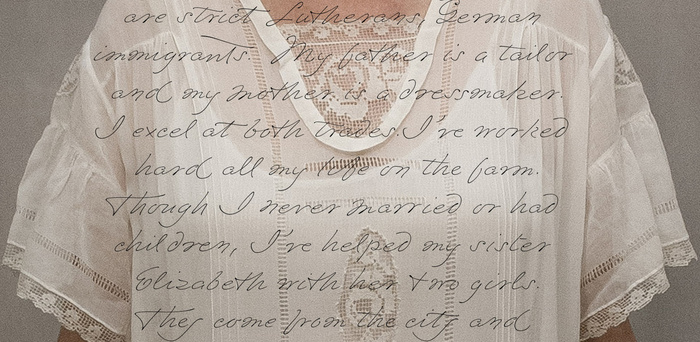 are strict Lutherans, German
immigrants. My father is a tailor
and my mother is a dressmaker.
I excel at both trades. I've worked
hard all my life on the farm.
Though I never married or had
children, I've helped my sister
Elizabeth with her two girls.
They come from the city and